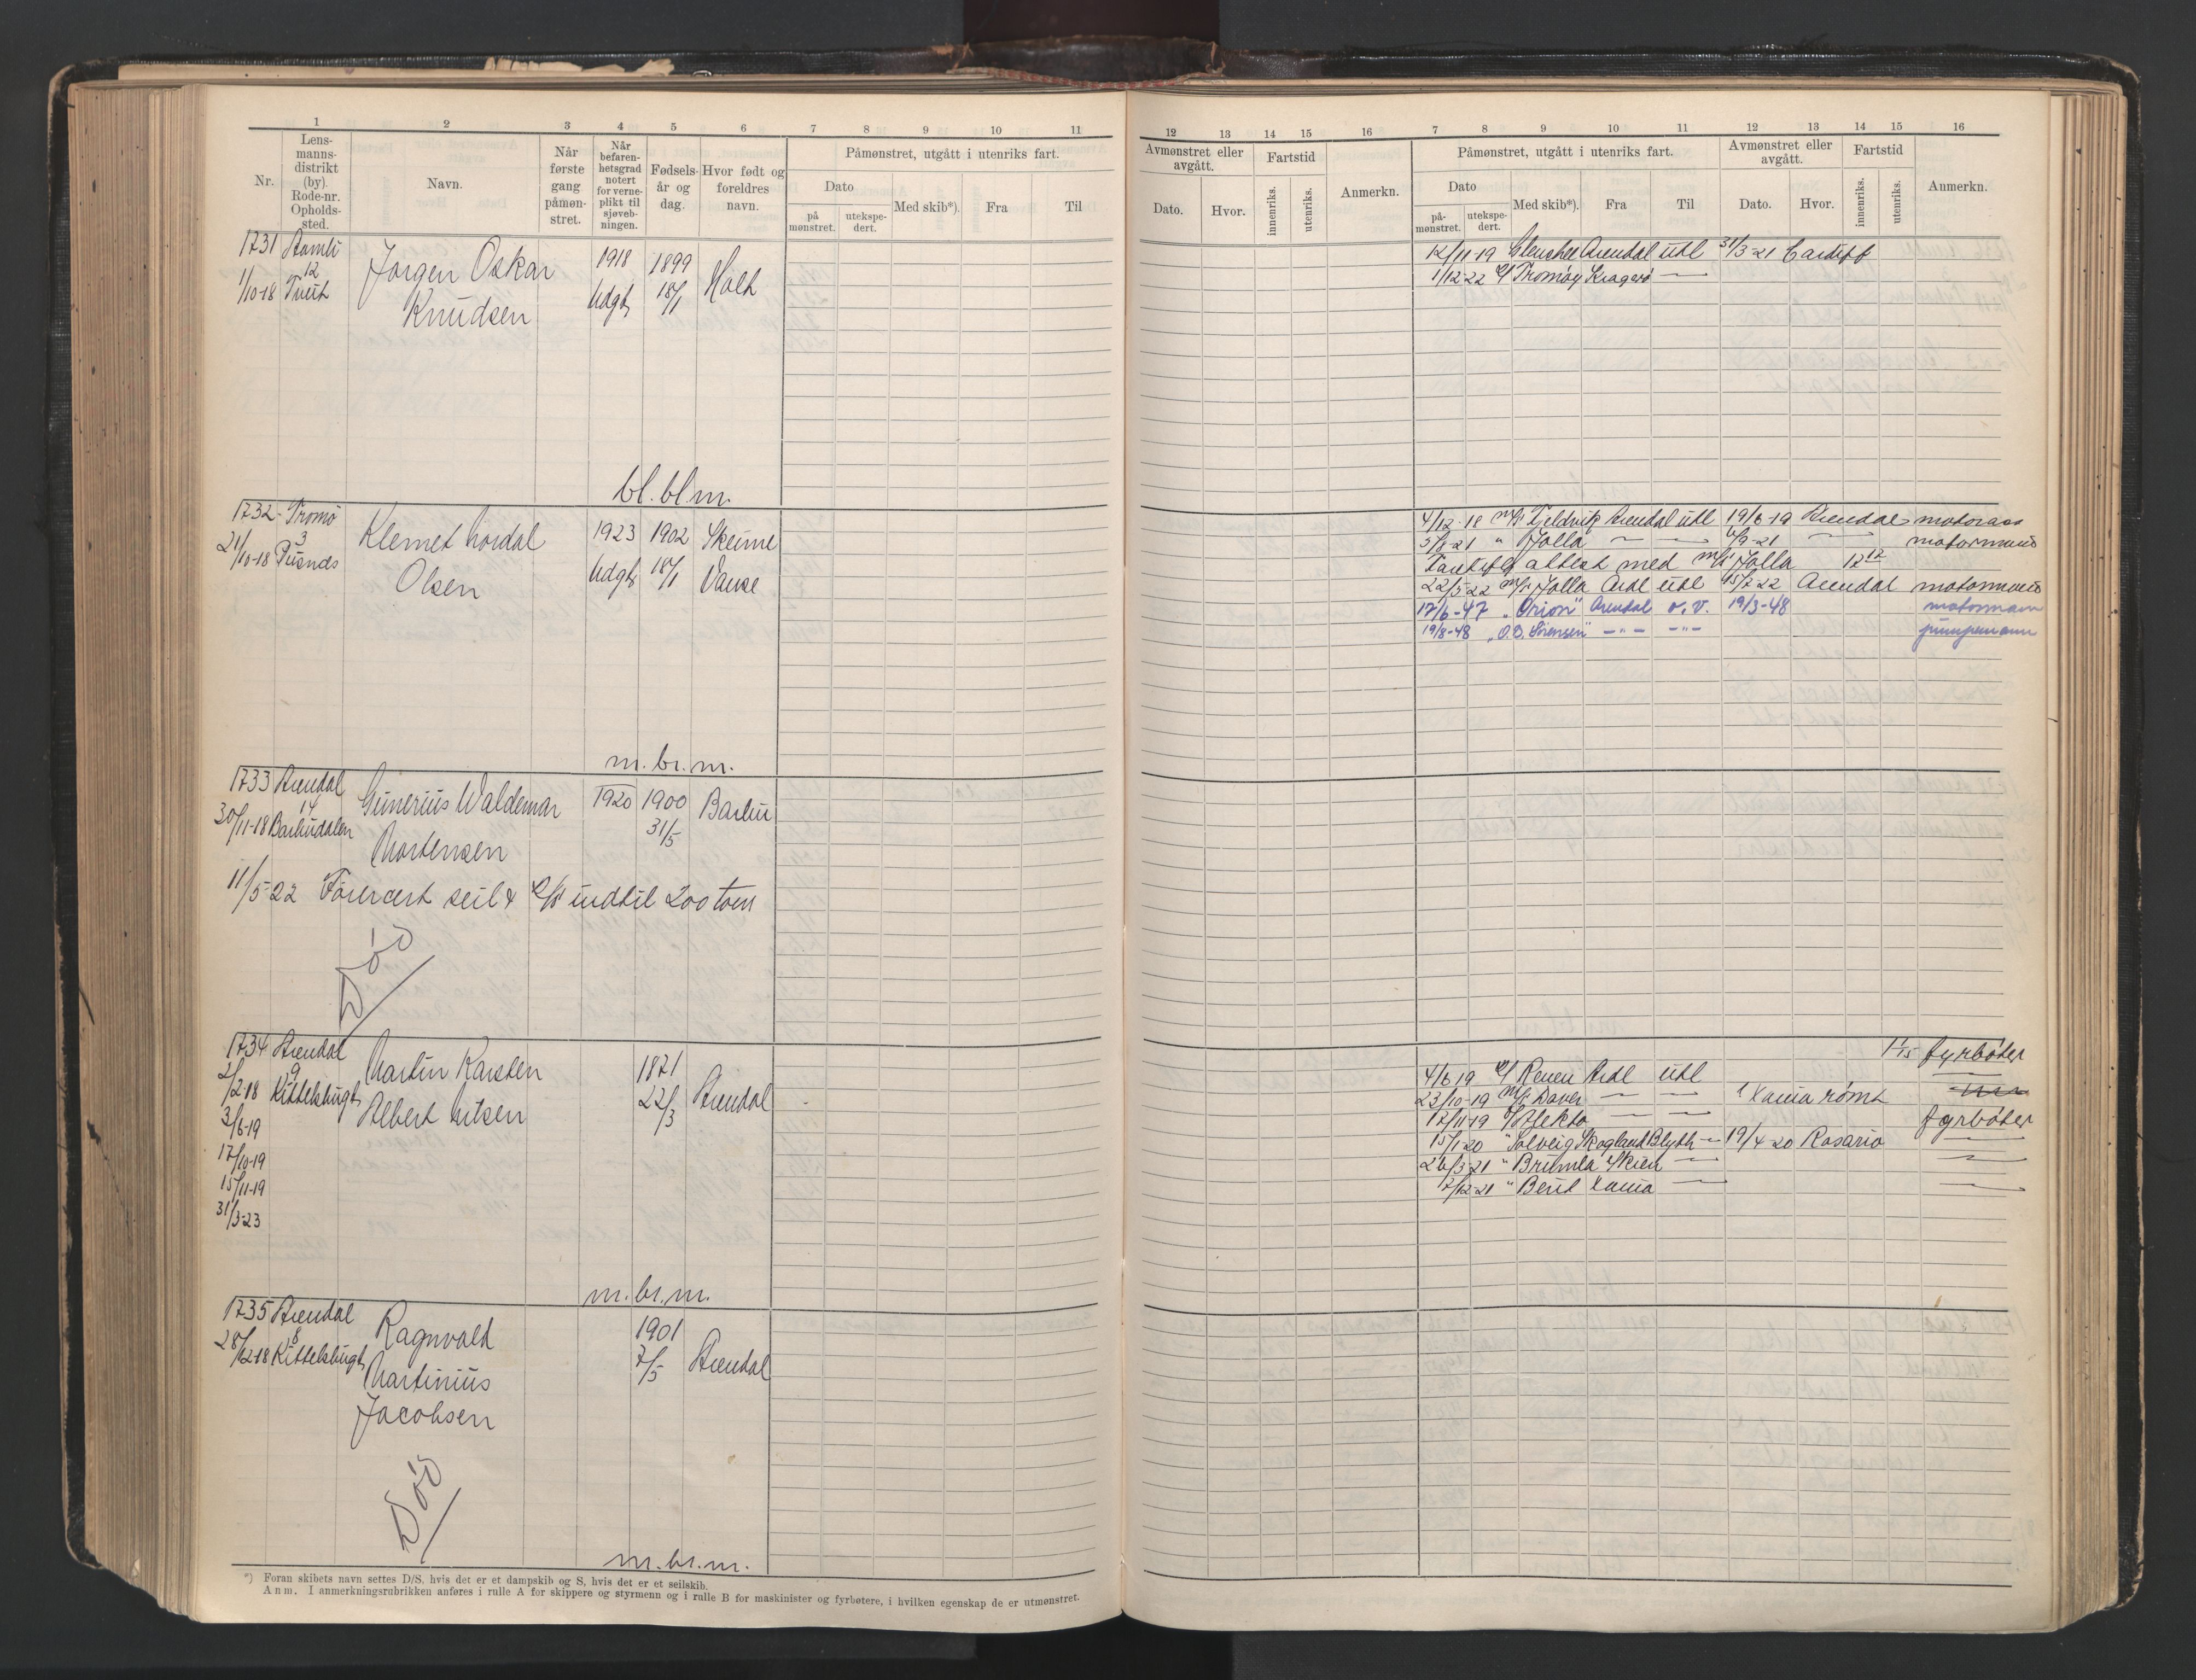 1 2 3 4 5 6 7 8 9 10 11
Nr.
Lens-
manns-
distrikt
(by).
Rode-nr.
Opholds-
sted.
Navn.
Når
første
gang
påmøn-
stret.
Når
befaren-
hetsgrad
notert
for verne-
plikt til
sjøveb-
ningen.
Fødsels-
år og
dag.
Hvor født og
foreldres
navn.
Påmønstret, utgått i utenriks fart.
Dato
på
mønstret.
utekspe-
dert.
Med skib*).
Fra
Til
1731
12
1/10-18 Tveit
Jørgen Oskar
Knudsen
1918
Udg.
1899
18/1
Holt
bl. bl m.
1732 Tromø
3
21/10-18 Pusnds
Klemet
Olsen
1923
Udg.
1902
18/1
Skeime
Vanse
m. br. m.
1733 Arendal
14
30/11-18 Barbudalen
Gunerius Waldemar
Mortensen
1920
1900
31/5
Barbu
11/5-22 Førercert seil & D/S indtil 200 tons
Død
1734 Arendal
9
2/2-18 Kittelsbugt
3/6-19
17/10-19
15/11-19
31/3-23
Martin Karsten
Albert
1871
22/3
Arendal
m. br. m.
1735 Arendal
8
28/12-18 Kittelsbugt
Ragnvald
Martinius
Jacobsen
1901
7/5
Arendal
Død
m. br. m.
*) Foran skibets navn settes D/S, hvis det er et dampskib og S, hvis det er et seilskib.
Anm. I anmerkningsrubrikken anføres i rulle A for skippere og styrmenn og i rulle B for maskinister og fyrbøtere, i hvilken egenskap de er utmønstret.
12 13 14 15 16 7 8 9 10 11 12 13 14 15 16
Avmønstret eller
avgått.
Dato.
Hvor.
Fartstid
innenriks.
utenriks.
Anmerkn.
Påmønstret, utgått i utenriks fart.
Dato
på-
mønstret.
utekspe-
dert.
Med skib*).
Fra
Til
Avmønstret eller
avgått.
Dato.
Hvor.
Fartstid
innenriks.
utenriks.
Anmerkn.
12/11-19 Arendal utl 31/3-21 Cardiff
1/12-22 Tromøy Kragerø —
4/12-18 m/s Tjeldvik Arendal utl 19/6-19 Arendal motorass
5/8-21 " Jolla — — 6/9-21 — motormand
Fartstid attest med m/s Jolla 12 12
22/5-22 m/s Jolla Ardl utl 15/7-22 Arendal motormand
17/6-47 "Orion" Arendal o.v. 19/3-48 motormann
19/8-48 "O.B. Sørensen" —"— —"— pumpemann
1/15 fyrbøter
4/6-19 Renen Ardl utl —
23/10-19 m/s Daver — — Xania rømt
17/11-19 Elekto — — fyrbøter
15/1-20 " Solveig Skogland Blyth — 19/4-20 Rosario —
26/3-21 " Brumla Skien — —
7/12-21 " Berit Xania — —